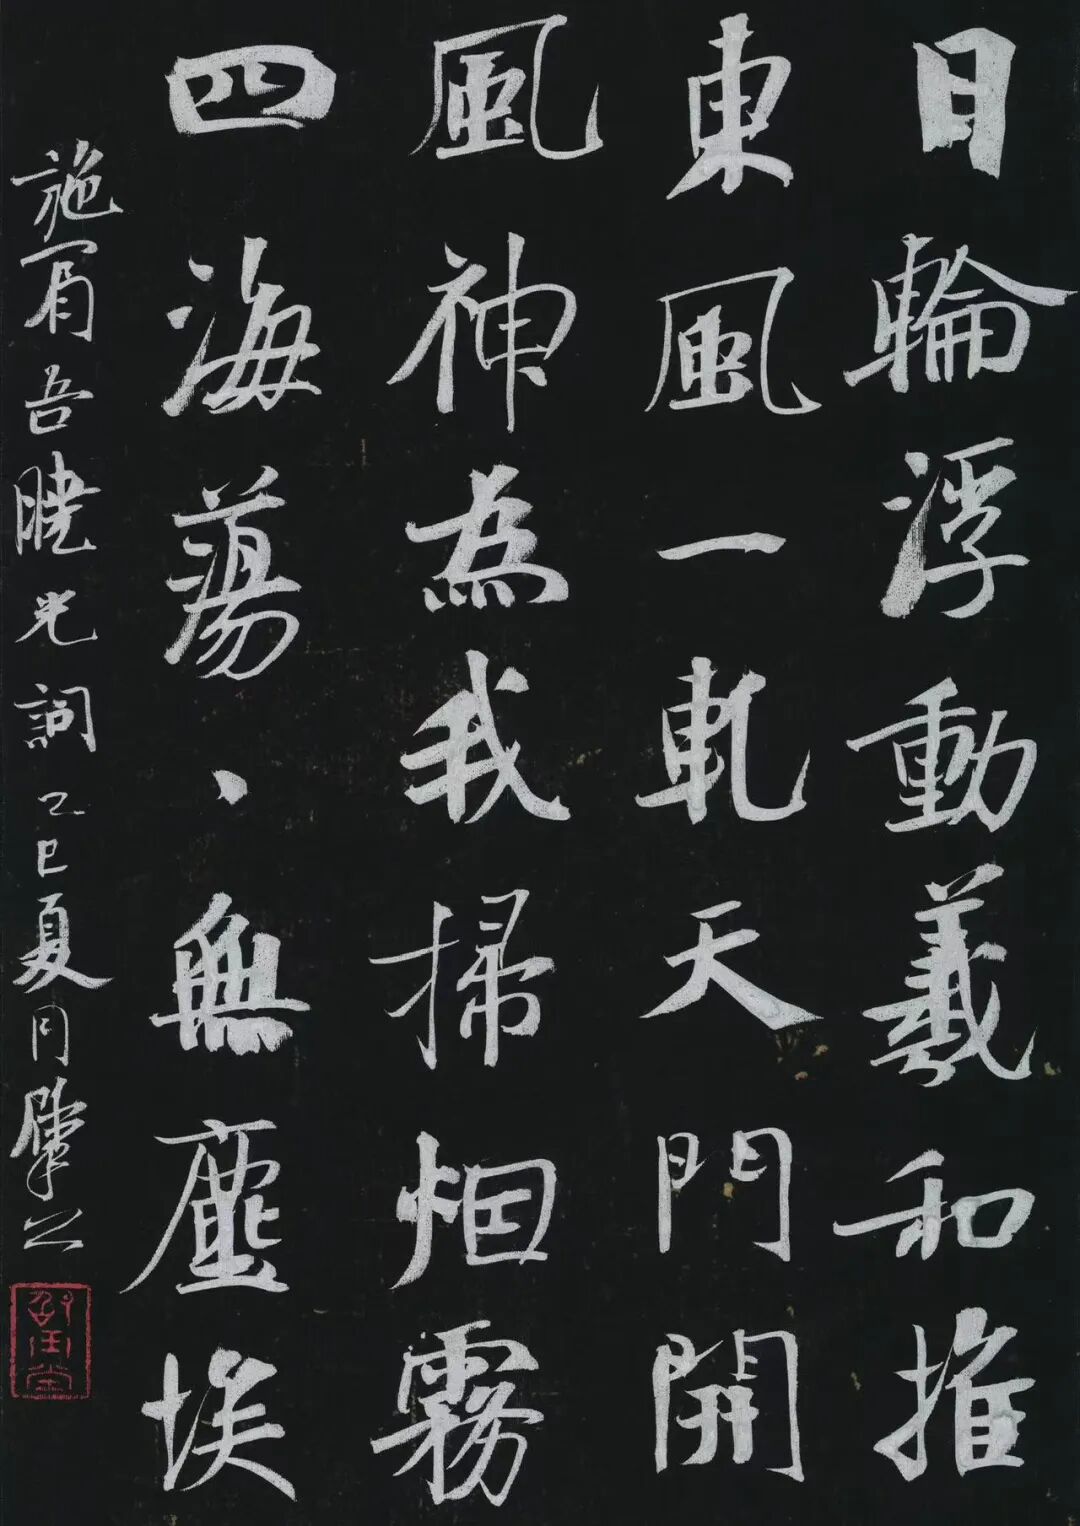 日輪浮動羲和推
東風一軋天門開
風神為我掃烟霧
四海蕩、無塵埃
施肩吾曉光詞乙巳夏